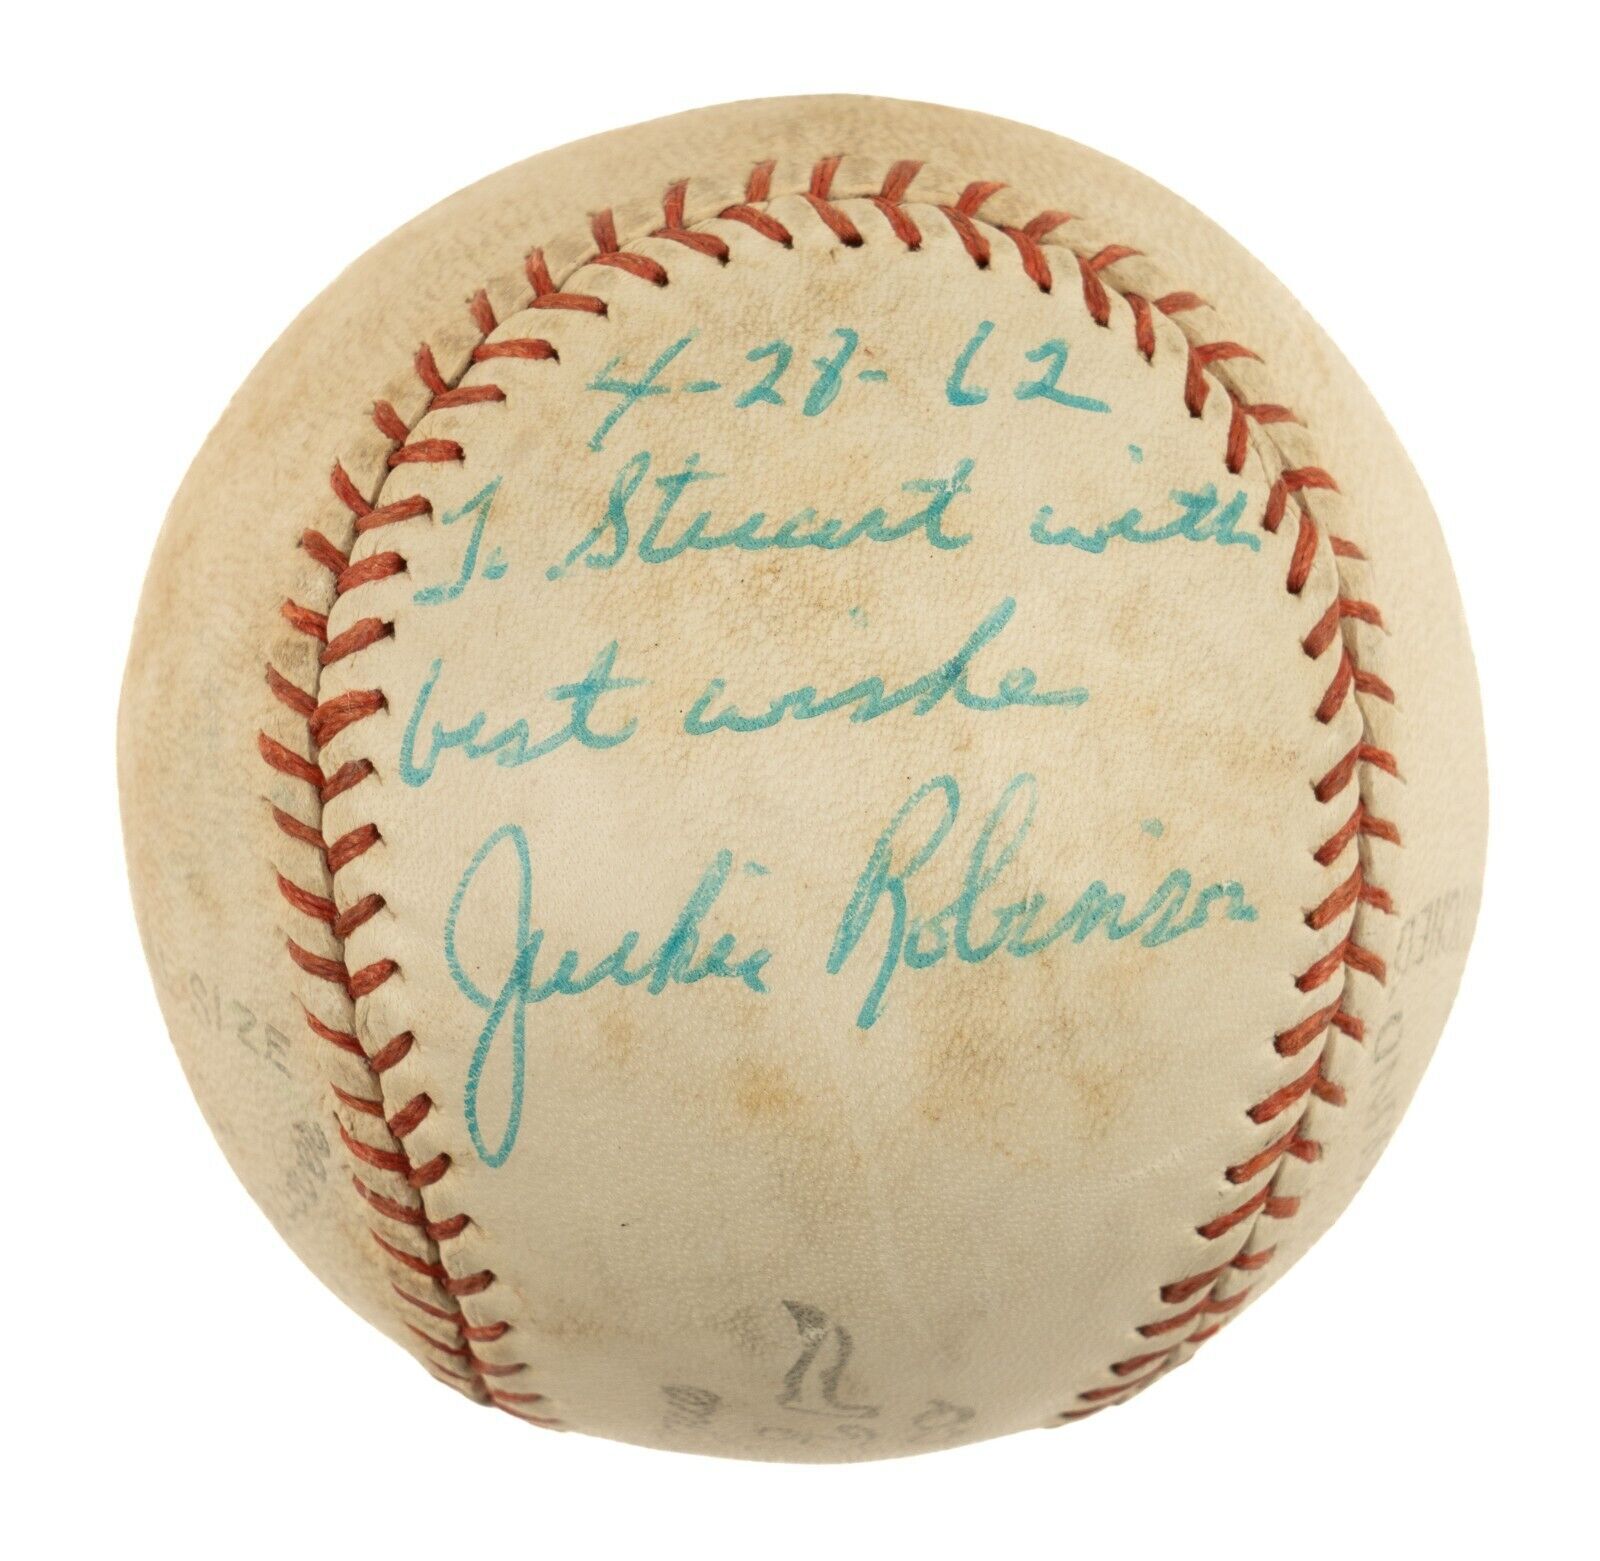 4-28-62
To Stuart with
best wishe
Jackie Robinson
SIZE